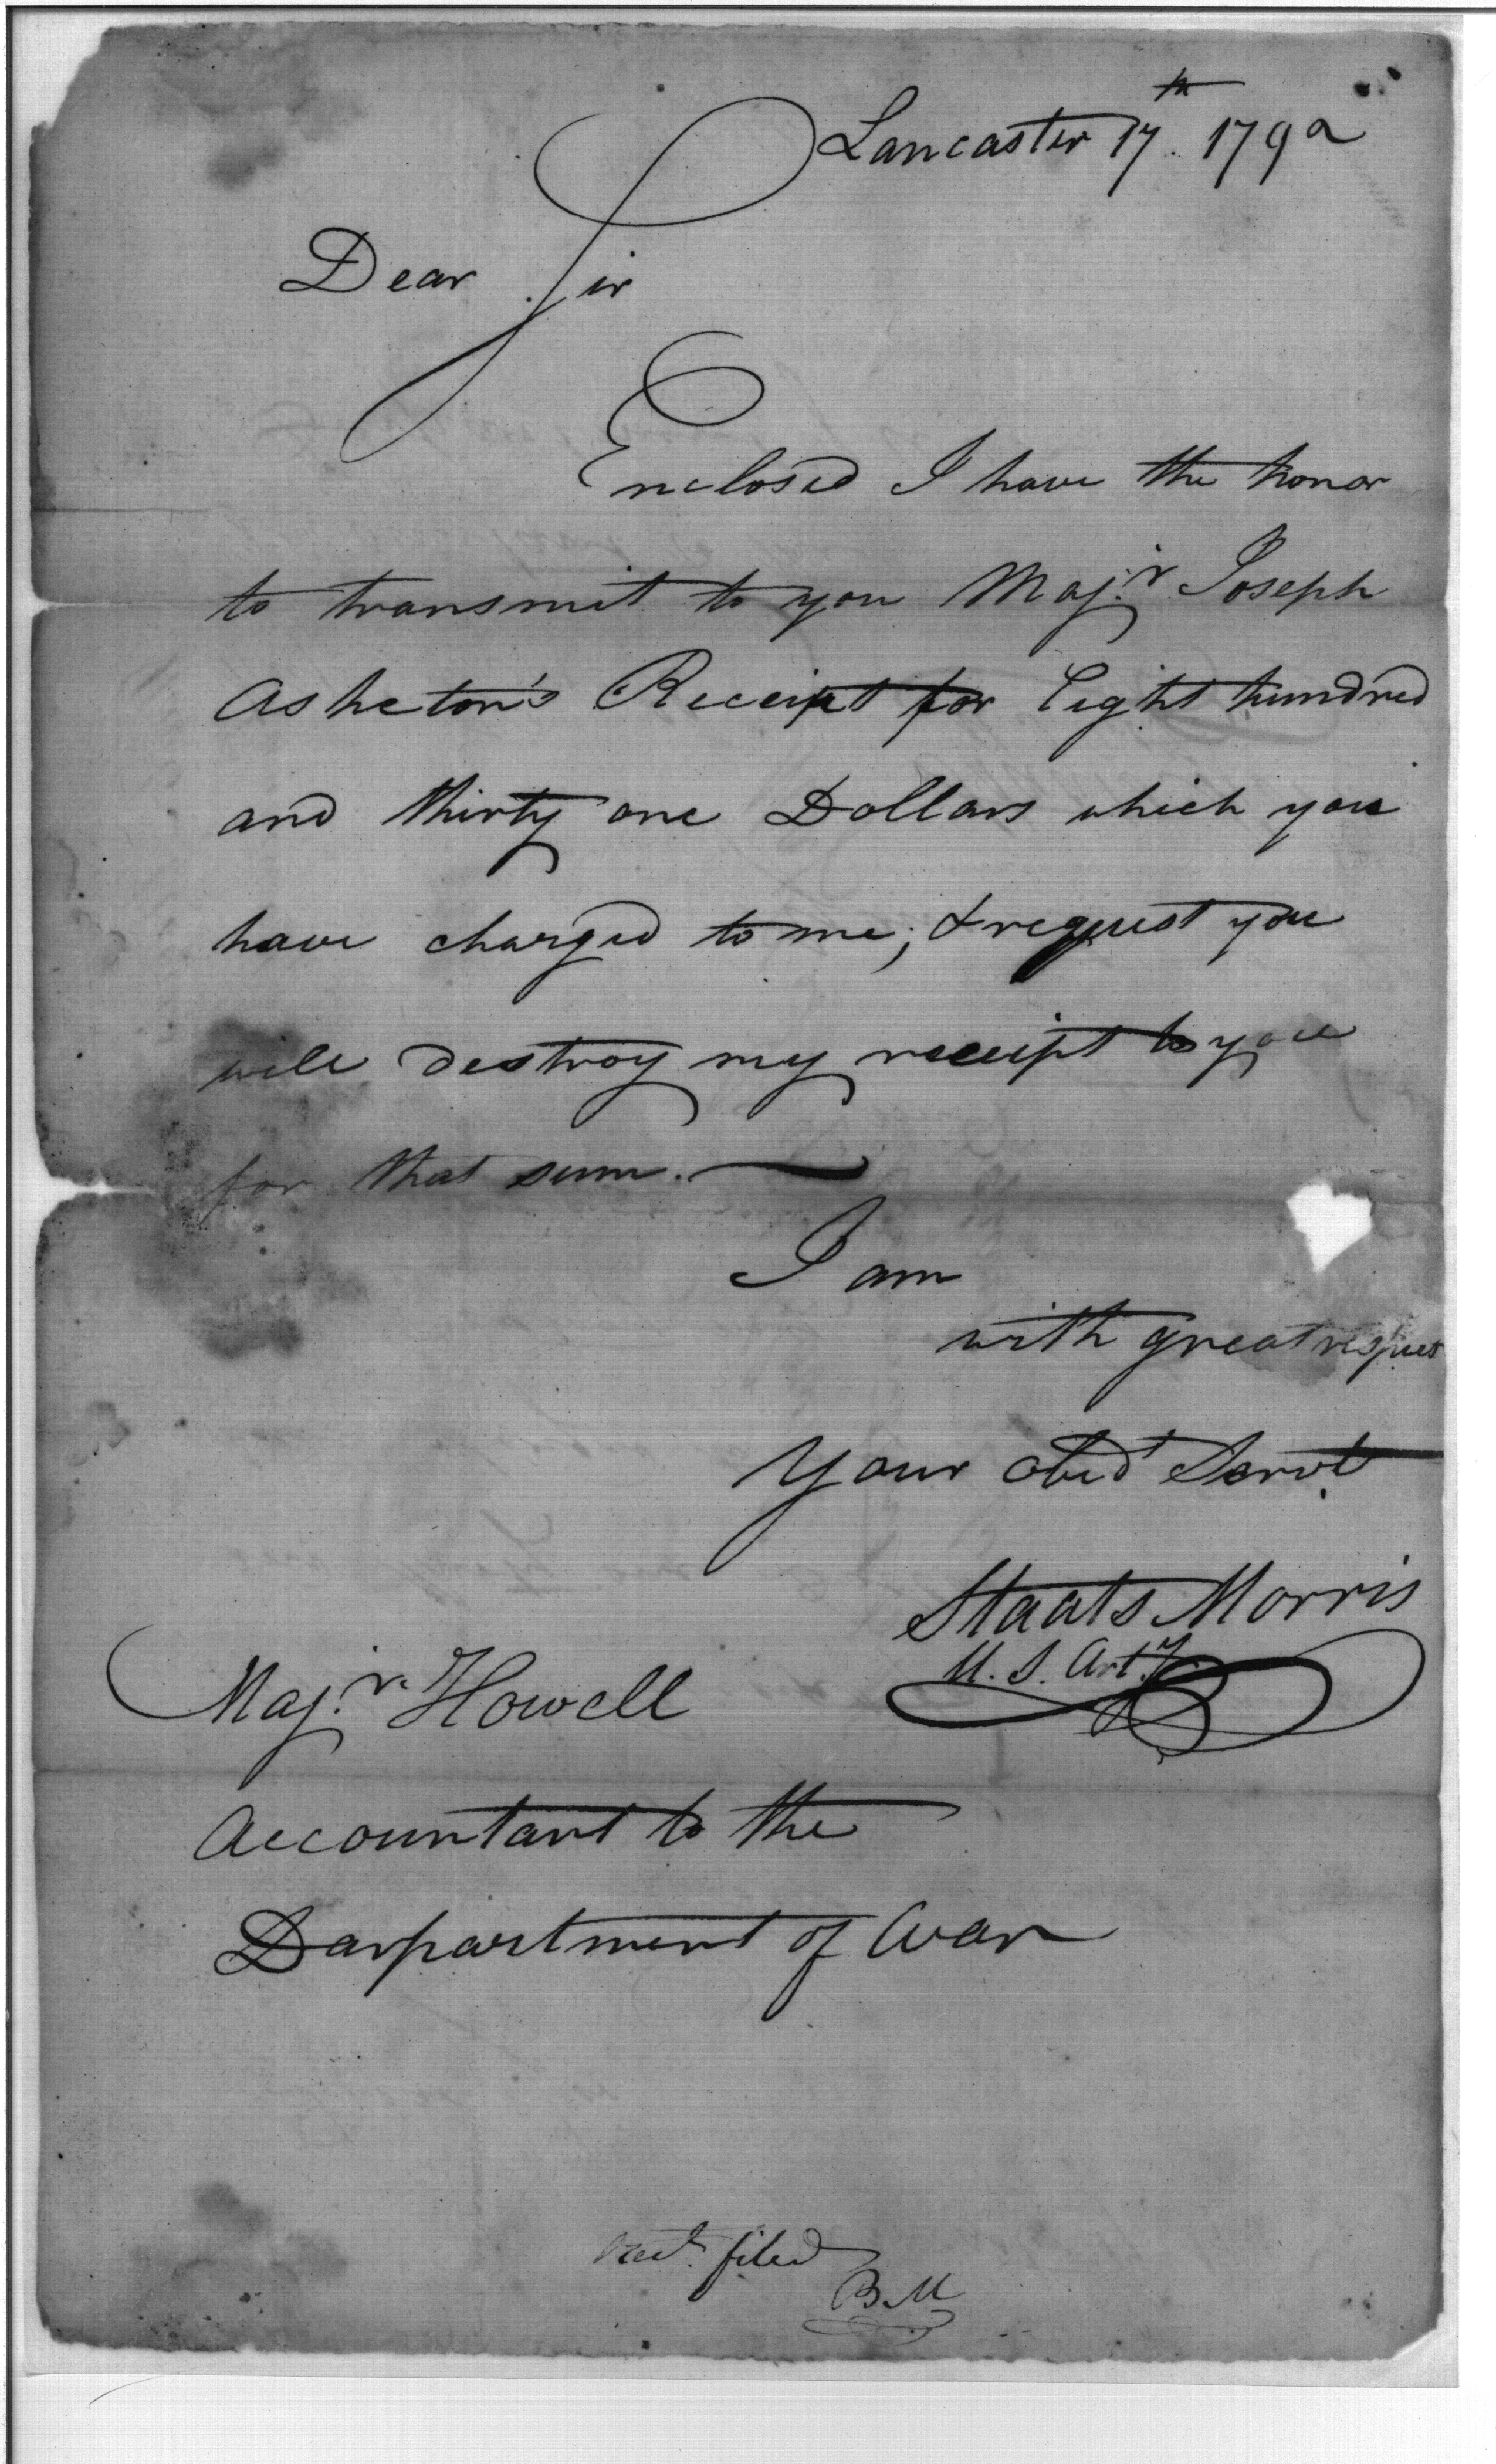 Lancaster 17.th 1792
Dear Sir
Enclosed I have the honor
to transmit to you Maj.r Joseph
Asheton's Receipt for Eight hundred
and thirty one Dollars which you
have charged to me; & request you
will destroy my receipt to you
for that sum.
I am
with great respect
Your obed.t Servt.
Staats Morris
U. S. Art.y
Maj.r Howell
Accountant to the
Darpartment of War
Rect. filed
B. M